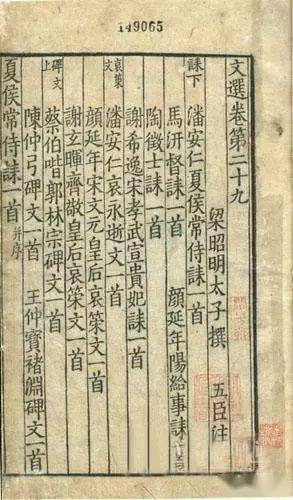 149065
文選卷第二十九
梁昭明太子撰 五臣注
誄下
潘安仁夏侯常侍誄一首
馬汧督誄一首 顏延年陽給事誄一首
陶徵士誄一首
謝希逸宋孝武宣貴妃誄一首
哀策文
潘安仁哀永逝文一首
顏延年宋文元皇后哀策文一首
謝玄暉齊敬皇后哀策文一首
碑文上
蔡伯喈郭林宗碑文一首
陳仲弓碑文一首 王仲寶褚淵碑文一首
夏侯常侍誄一首 并序